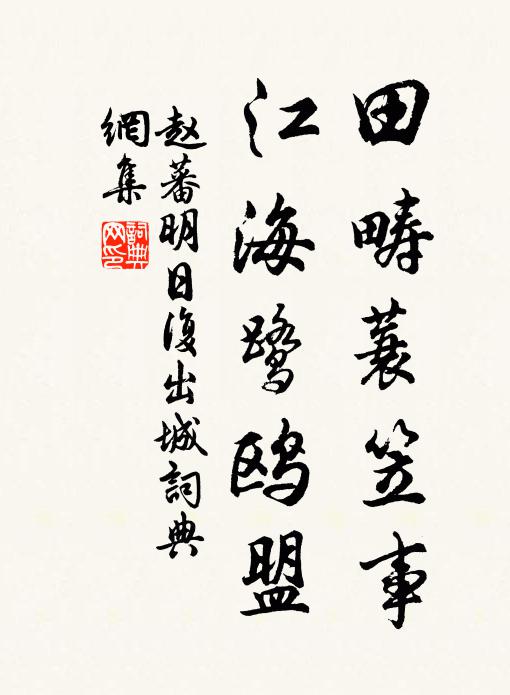 田畴蓑笠事
江海鹭鸥盟
赵蕃明日復出城詞典
網集
詞典
网印